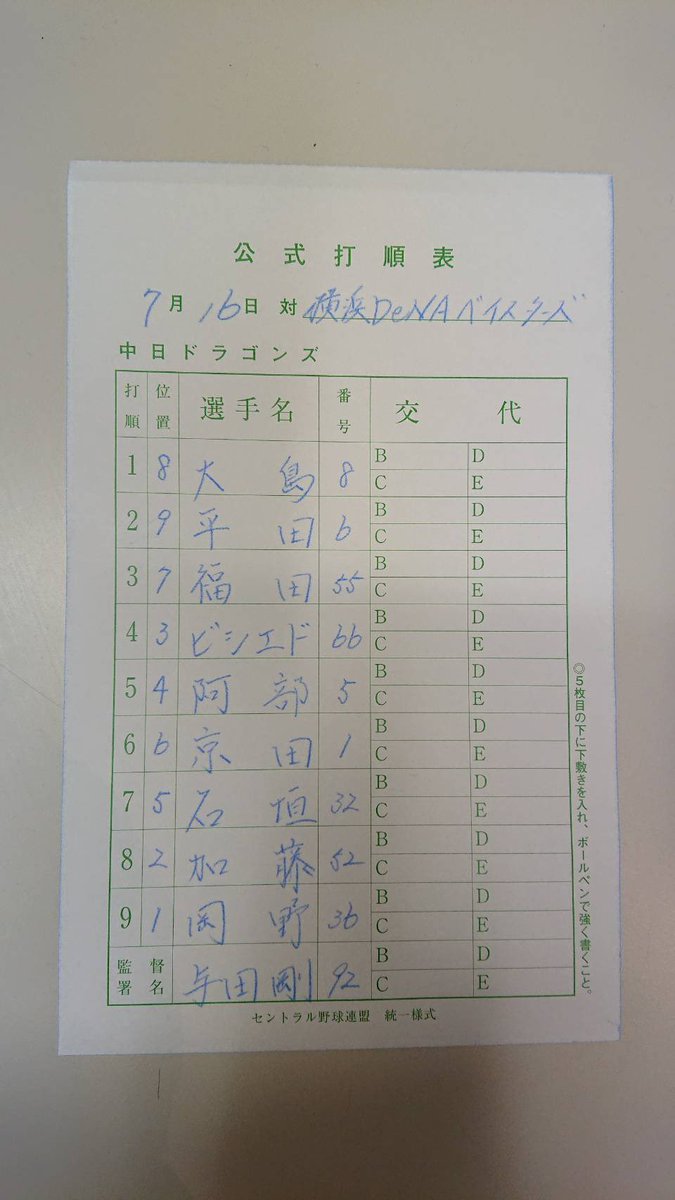 公式打順表
7月16日 対 横浜DeNAベイスターズ
中日ドラゴンズ
打順 位置 選手名 番号 交代
1 8 大島 8 B D C E
2 9 平田 6 B D C E
3 7 福田 55 B D C E
4 3 ビシエド 66 B D C E
5 4 阿部 5 B D C E
6 6 京田 1 B D C E
7 5 石垣 32 B D C E
8 2 加藤 52 B D C E
9 1 岡野 36 B D C E
監督署名 与田剛 92 B D C E
セントラル野球連盟 統一様式
◎5枚目の下に下敷きを入れ、ボールペンで強く書くこと。